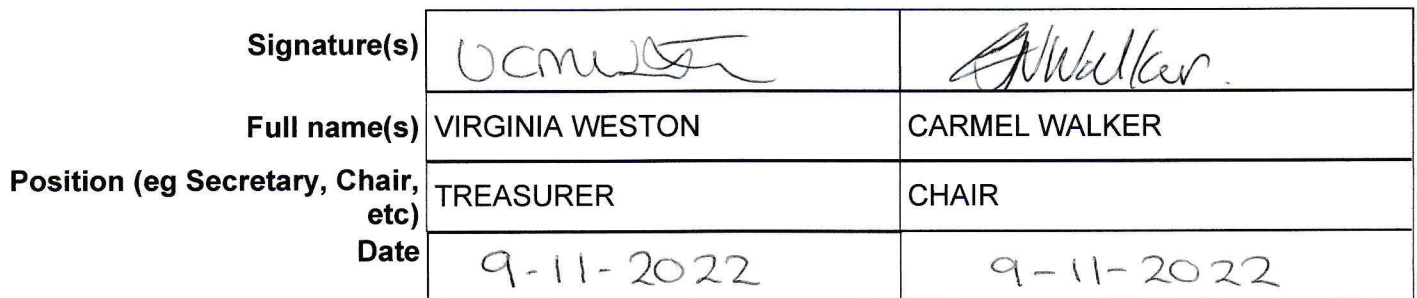 Signature(s)
Walker.
Full name(s) VIRGINIA WESTON CARMEL WALKER
Position (eg Secretary, Chair,
etc) TREASURER CHAIR
Date 9-11-2022 9-11-2022